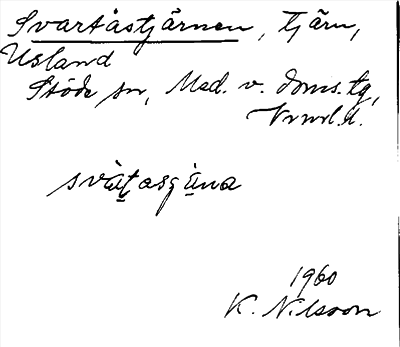 Svartåstjärnen, tjärn,
Usland
Stöde sn, Med. v. doms.tg,
Vnrl.l.
svätasgäna
1960
K. Nilsson